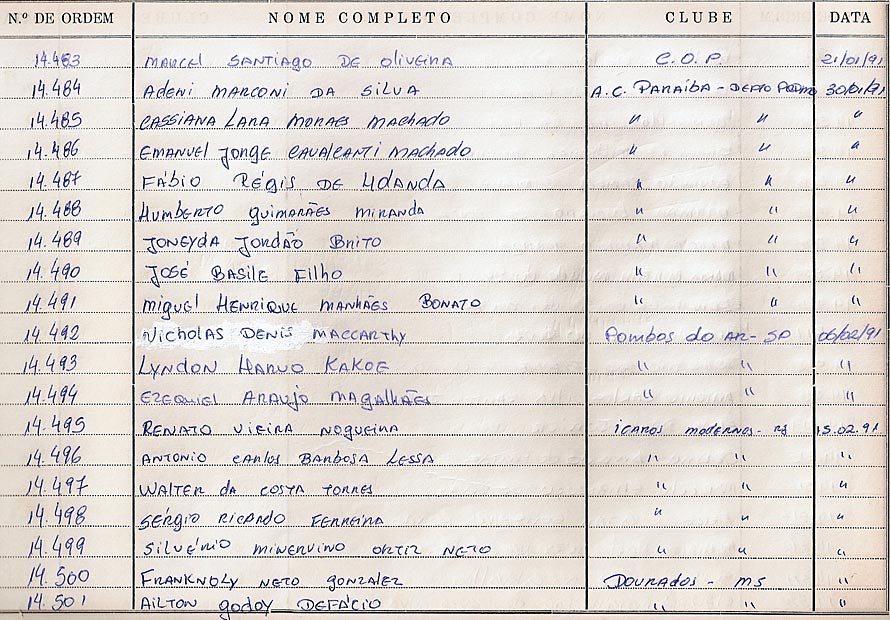 N.º DE ORDEM NOME COMPLETO CLUBE DATA
14.483 MARCEL SANTIAGO DE OLIVEIRA C.O.P. 21/01/91
14.484 ADENI MARCONI DA SILVA A.C. PARAÍBA - 30/01/91
14.485 CASSIANA LARA MORAES MACHADO " " "
14.486 EMANUEL JORGE CAVALCANTI MACHADO " " "
14.487 FÁBIO RÉGIS DE " " "
14.488 HUMBERTO GUIMARÃES MIRANDA " " "
14.489 JONEYDA JORDÃO BRITO " " "
14.490 JOSÉ BASILE FILHO " " "
14.491 MIGUEL HENRIQUE MANHÃES BONATO " " "
14.492 NICHOLAS DENIS MACCARTHY POMBOS DO AR - SP 06/02/91
14.493 LYNDON HARUO KAKOE " " "
14.494 EZEQUIEL ARAUJO MAGALHÃES " " "
14.495 RENATO VIEIRA NOGUEIRA ICAROS MODERNOS - 15.02.91
14.496 ANTONIO CARLOS BARBOSA LESSA " " "
14.497 WALTER DA COSTA TORRES " " "
14.498 SÉRGIO RICARDO FERREIRA " " "
14.499 SILVÉRIO MINERVINO ORTIZ NETO " " "
14.500 FRANKNOLY NETO GONZALEZ DOURADOS - MS "
14.501 AILTON GODOY DEFÁCIO " " "